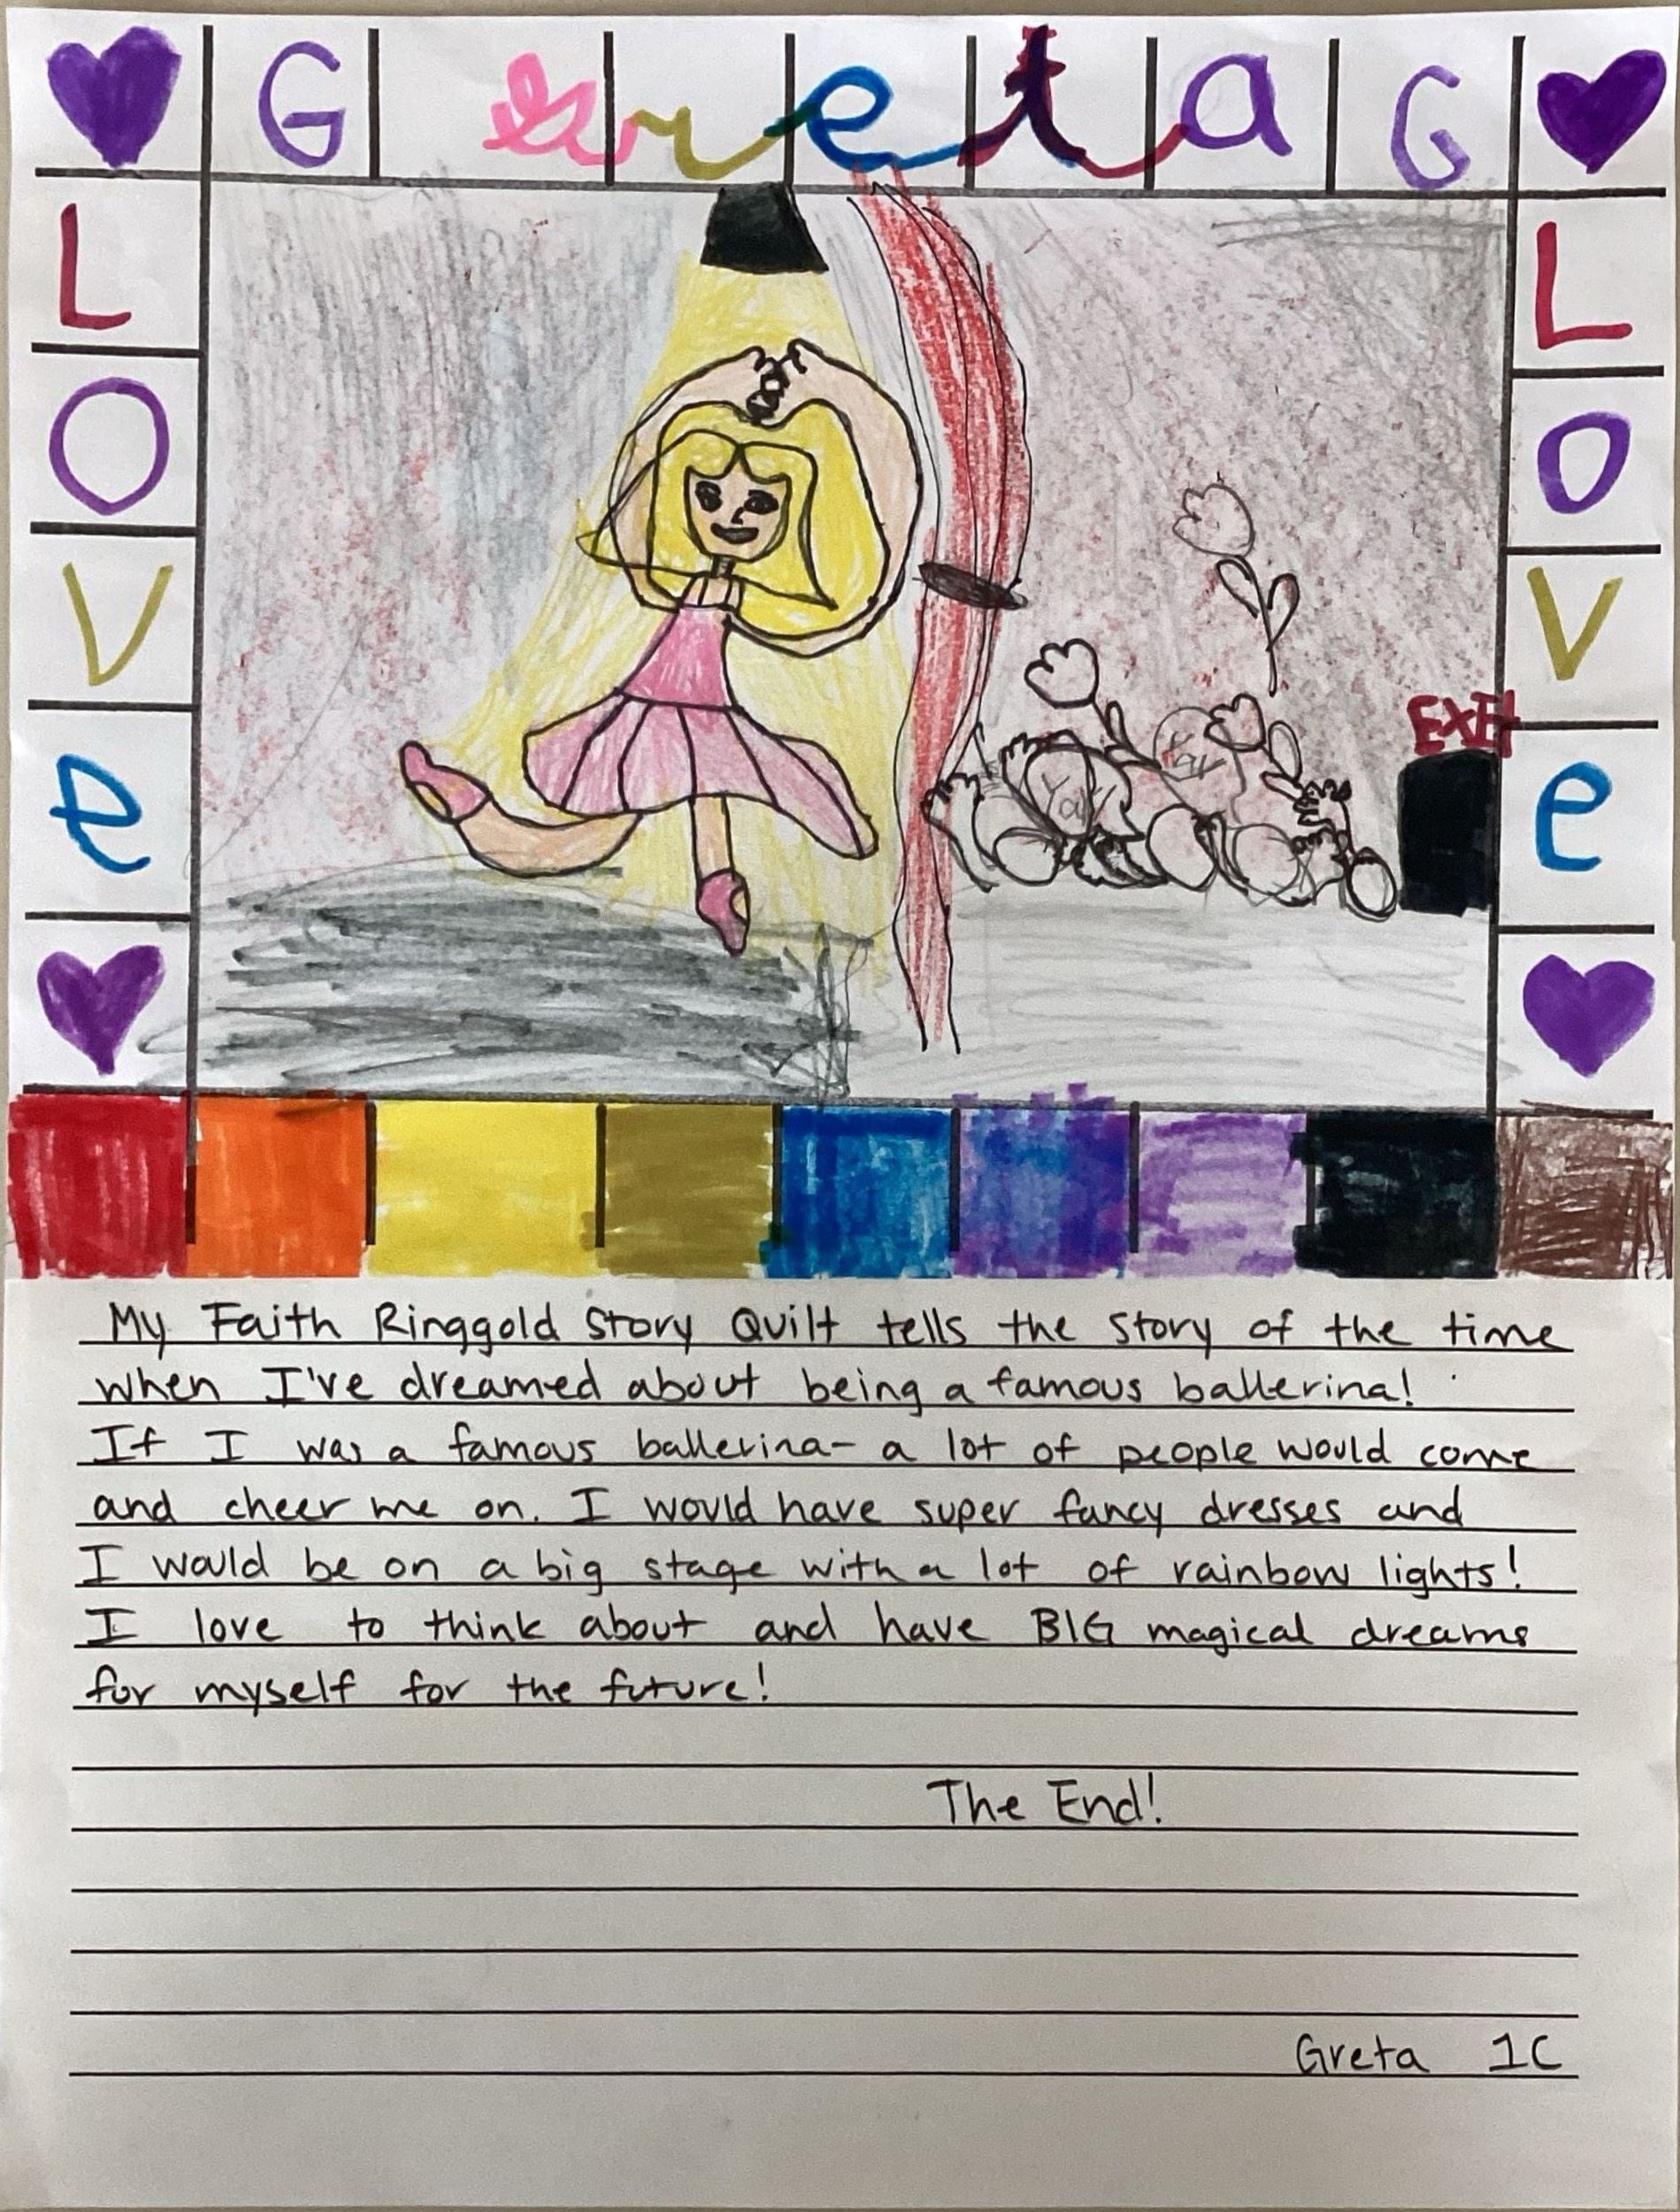 G Greta G
L L
O O
V V
e e
EXIT
Yay
My Faith Ringgold Story Quilt tells the story of the time
when I've dreamed about being a famous ballerina!
If I was a famous ballerina- a lot of people would come
and cheer me on. I would have super fancy dresses and
I would be on a big stage with a lot of rainbow lights!
I love to think about and have BIG magical dreams
for myself for the future!
The End!
Greta 1C